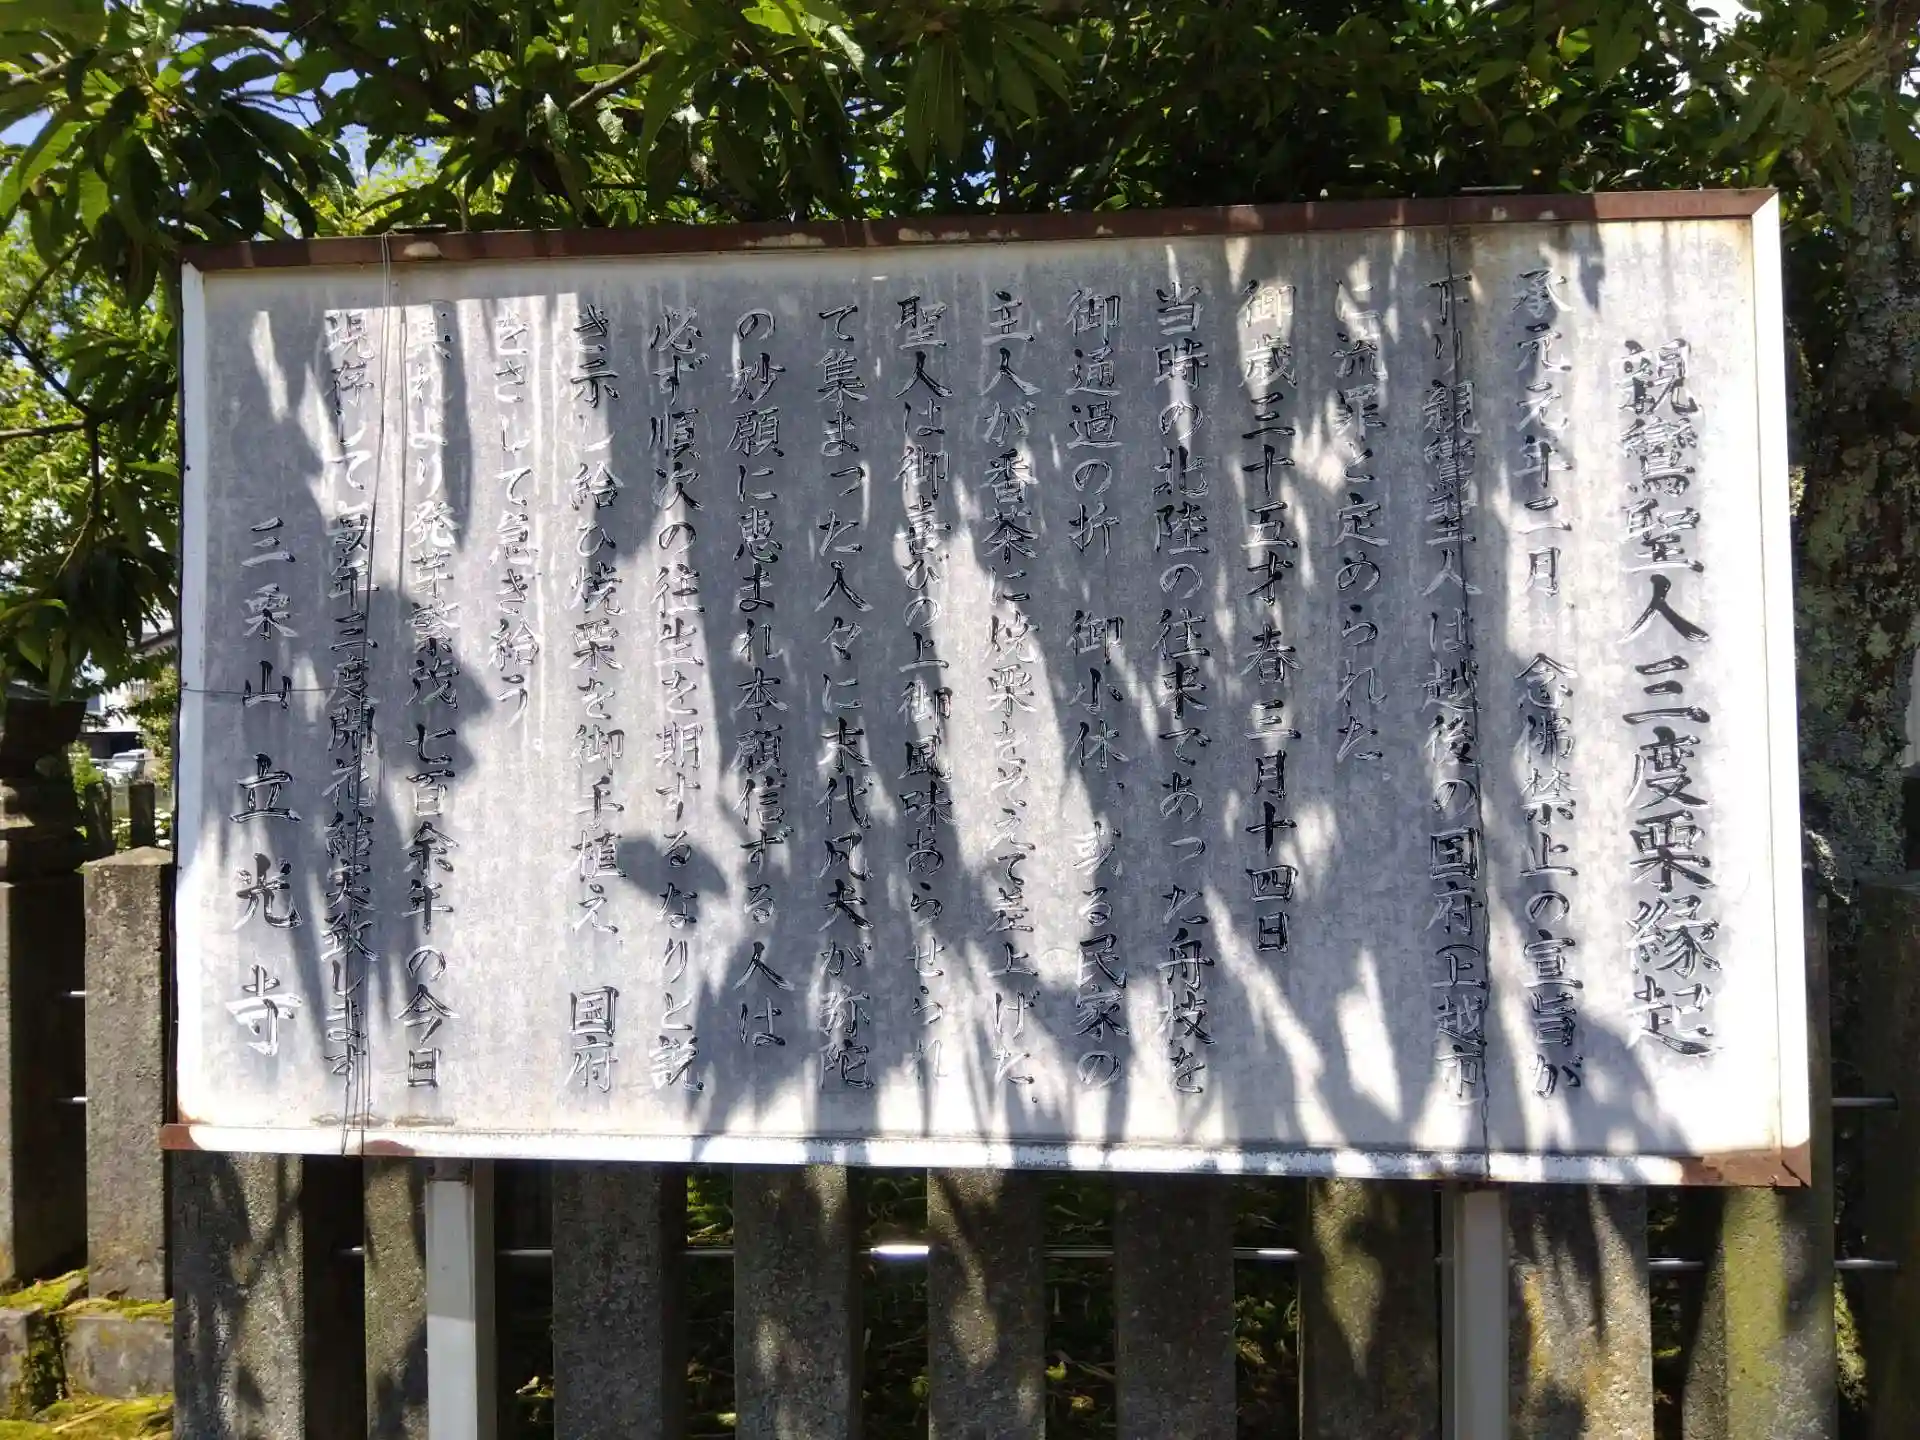 親鸞聖人三度栗縁起
承元元年十二月 念佛禁止の宣旨が
下り親鸞聖人は越後の国府(上越市)
に流罪と定められた
御歳三十五才春三月十四日
当時の北陸の往来であった舟枝を
御通過の折 御小休、或る民家の
主人が香茶に焼栗をそえて差上げた、
聖人は御喜びの上御風味あらせられ
て集まった人々に末代凡夫が弥陀
の妙願に恵まれ本願信ずる人は
必ず順次の往生を期するなりと説
き示し給ひ焼栗を御手植え 国府
をさして急ぎ給う。
其れより発芽繁茂七百余年の今日
現存して毎年三度開花結実致します
三栗山立光寺